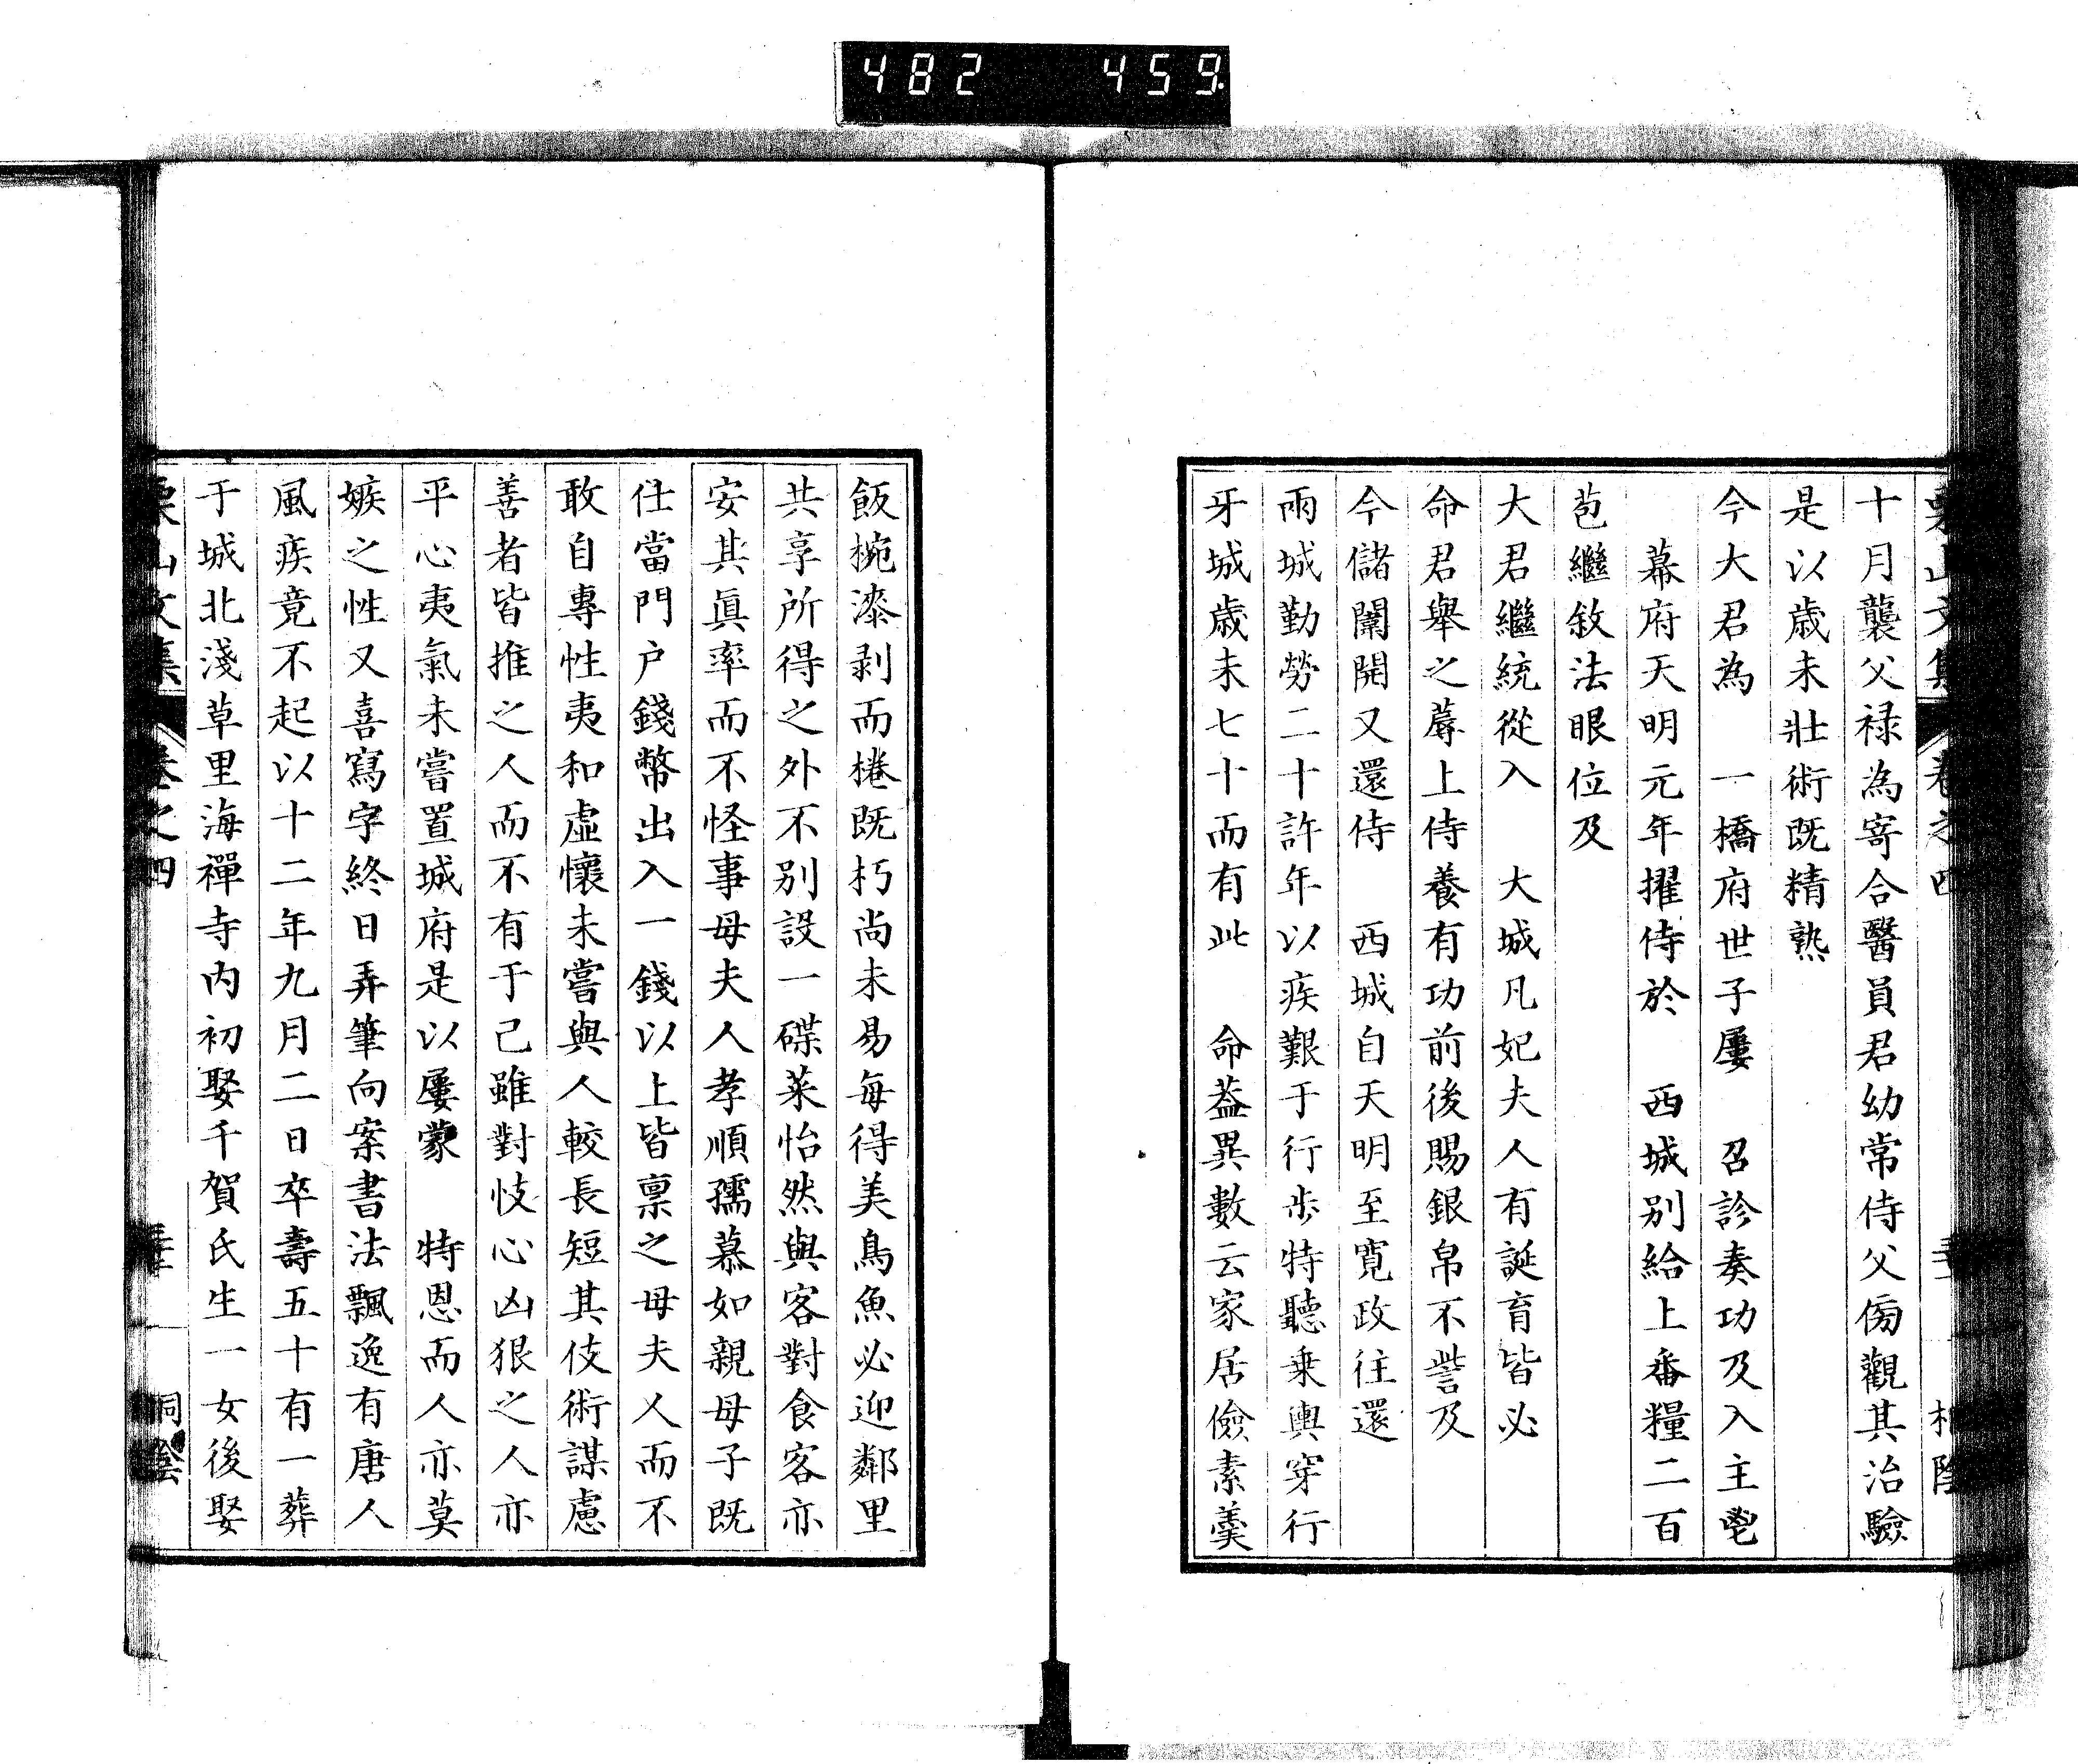 482 459
十月襲父禄為寄合醫員君幼常侍父傍觀其治驗
是以歳未壯術既精熟
今大君為 一橋府世子屢 召診奏功及入主鬯
幕府天明元年擢侍於 西城別給上番糧二百
苞繼敘法眼位及
大君繼統從入 大城凡妃夫人有誕育皆必
命君舉之蓐上侍養有功前後賜銀帛不訾及
今儲闈開又還侍 西城自天明至寛政往還
兩城勤勞二十許年以疾艱于行步特聽乗輿穿行
牙城歳未七十而有此 命葢異數云家居儉素羹
飯椀漆剥而棬既朽尚未易每得美鳥魚必迎鄰里
共享所得之外不別設一碟菜怡然與客對食客亦
安其眞率而不怪事母夫人孝順孺慕如親母子既
仕當門户錢幣出入一錢以上皆稟之母夫人而不
敢自專性夷和虛懷未嘗與人較長短其伎術謀慮
善者皆推之人而不有于己雖對忮心凶狠之人亦
平心夷氣未嘗置城府是以屢蒙 特恩而人亦莫
嫉之性又喜寫字終日弄筆向案書法飄逸有唐人
風疾竟不起以十二年九月二日卒壽五十有一葬
于城北淺草里海禪寺内初娶千賀氏生一女後娶
栗山文集 卷之四